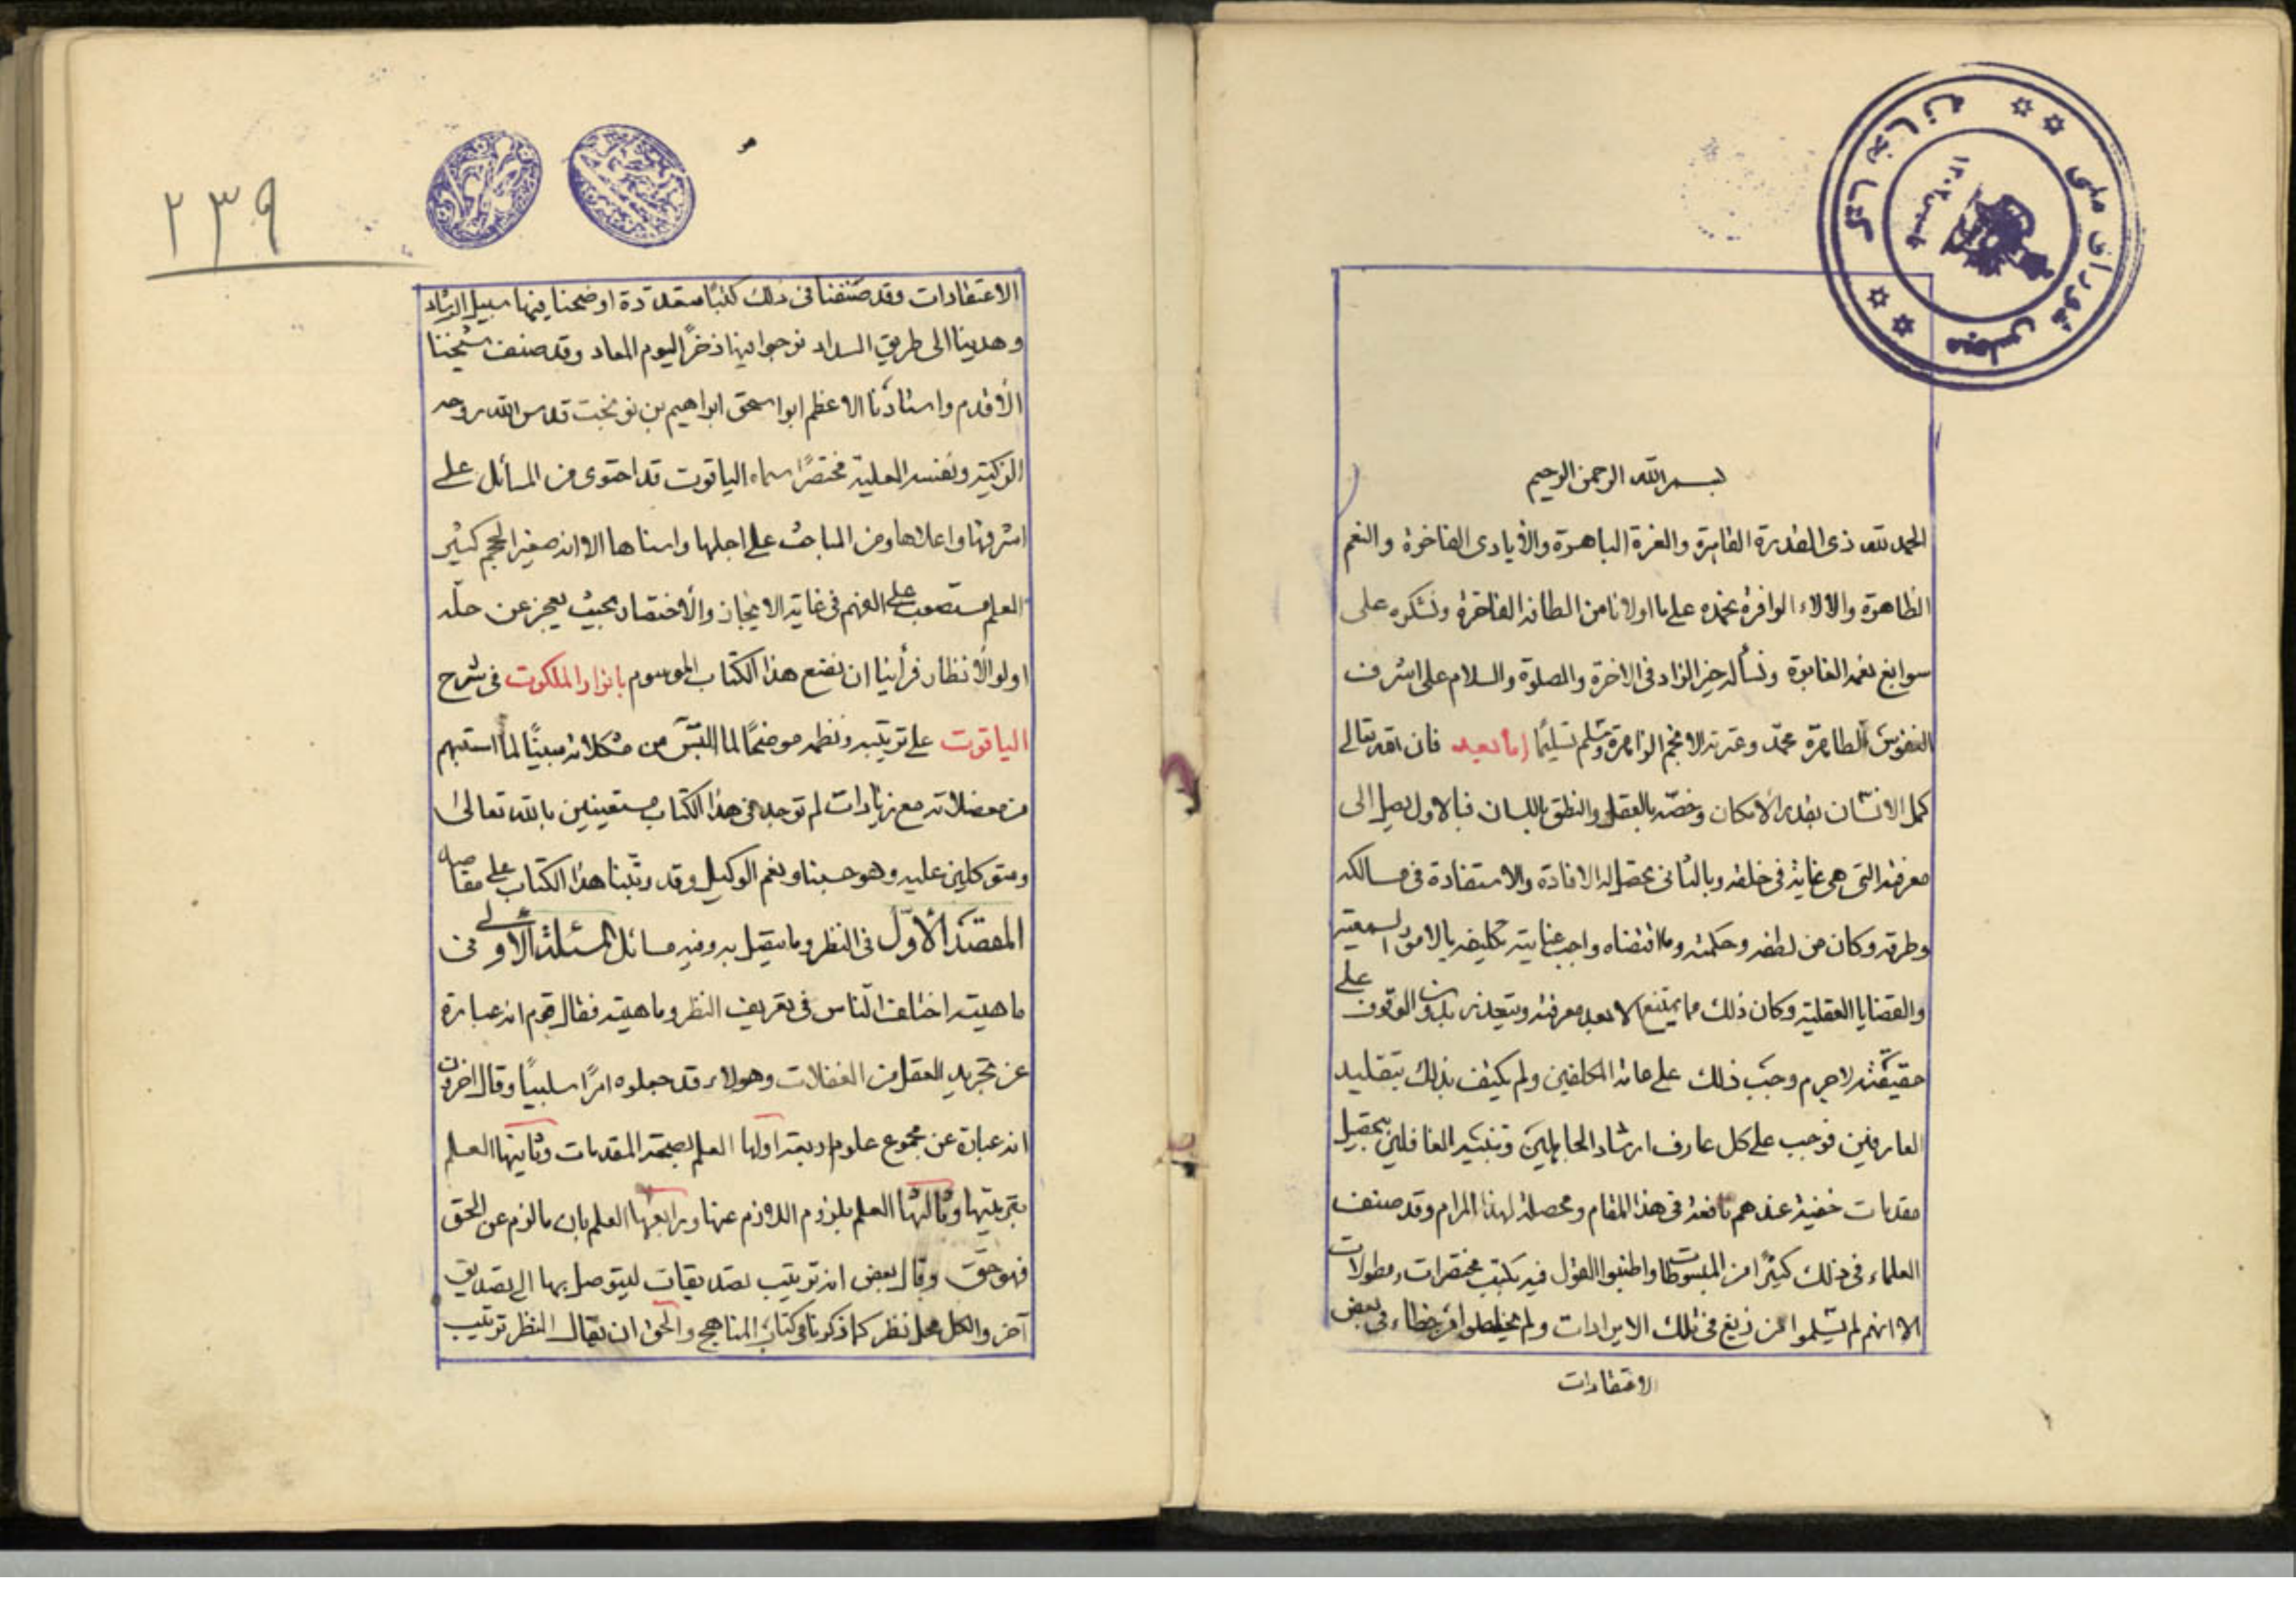 بسم الله الرحمن الرحيم
الحمد لله ذي القدرة القاهرة والعزة الباهرة والأيادى الفاخرة والنعم
الظاهرة والالاء الوافرة نحمده على ما اولانا من الطافه الفاخرة ونشكره على
سوابغ نعمه الغابرة ونسأله خير الزاد فى الاخرة والصلوة والسلام على اشرف
النفوس الطاهرة محمد وعترته الانجم الزاهرة وسلم تسليمًا اما بعد فان الله تعالى
كمل الانسان بقدر الامكان وخصّه بالعقل والنطق باللسان فبالاول يصل الى
معرفته التى هى غايته فى خلقه وبالثانى يحصل له الافادة والاستفادة فى مسالكه
وطرقه وكان من لطفه وحكمته وما اقتضاه واجب عنايته تكليفه بالامور السمعية
والقضايا العقلية وكان ذلك مما يمتنع الا بعد معرفته ويتعذر بدون الوقوف على
حقيقته لا جرم وجب ذلك على عامة المكلفين ولم يكتف بذلك بتقليد
العارفين فوجب على كل عارف ارشاد الجاهلين وتنبيه الغافلين بتحصيل
مقدمات خفية عندهم نافعة فى هذا المقام ومحصلة لهذا المرام وقد صنف
العلماء فى ذلك كثيرًا من المبسوطات واطنبوا القول فيه بكتب مختصرات ومطولات
الا انهم لم يسلموا من زيغ فى تلك الايرادات ولم يخلصوا من خطاء فى بعض
الاعتقادات
٢٣٩
الاعتقادات وقد صنفنا فى ذلك كتبًا متعددة اوضحنا فيها سبيل الرشاد
وهدينا الى طريق السداد نرجوا بها ذخرًا ليوم المعاد وقد صنف شيخنا
الأقدم واستاذنا الاعظم ابو اسحق ابراهيم بن نوبخت قدس الله روحه
الزكية ونفسه العلية مختصرًا سماه الياقوت قد احتوى من المسائل على
اشرفها واعلاها ومن المباحث على اجلها واسناها الا انه صغير الحجم كثير
العلم مستصعب على الفهم فى غاية الايجاز والأختصار بحيث يعجز عن حلّه
اولو الأنظار فرأينا ان نضع هذا الكتاب الموسوم بانوار الملكوت فى شرح
الياقوت على ترتيبه ونظمه موضحًا لما التبس من مشكلاته مبينًا لما استبهم
من معضلاته مع زيادات لم توجد فى هذا الكتاب مستعينين بالله تعالى
ومتوكلين عليه وهو حسبنا ونعم الوكيل وقد رتبنا هذا الكتاب على مقاصد
المقصد الأوّل فى النظر وما يتصل به وفيه مسائل المسئلة الأولى فى
ماهيته اختلف الناس فى تعريف النظر وماهيته فقال قوم انه عبارة
عن تجريد العقل من الغفلات وهولاء قد جعلوه امرًا سلبيًا وقال اخرون
انه عبارة عن مجموع علوم اربعة اولها العلم بصحة المقدمات وثانيها العلم
بترتيبها وثالثها العلم بلزوم اللازم عنها ورابعها العلم بان ما لزم عن الحق
فهو حق وقال بعض انه ترتيب تصديقات ليتوصل بها الى تصديق
آخر والكل محل نظر كما ذكرنا فى كتاب المناهج والحق ان يقال النظر ترتيب